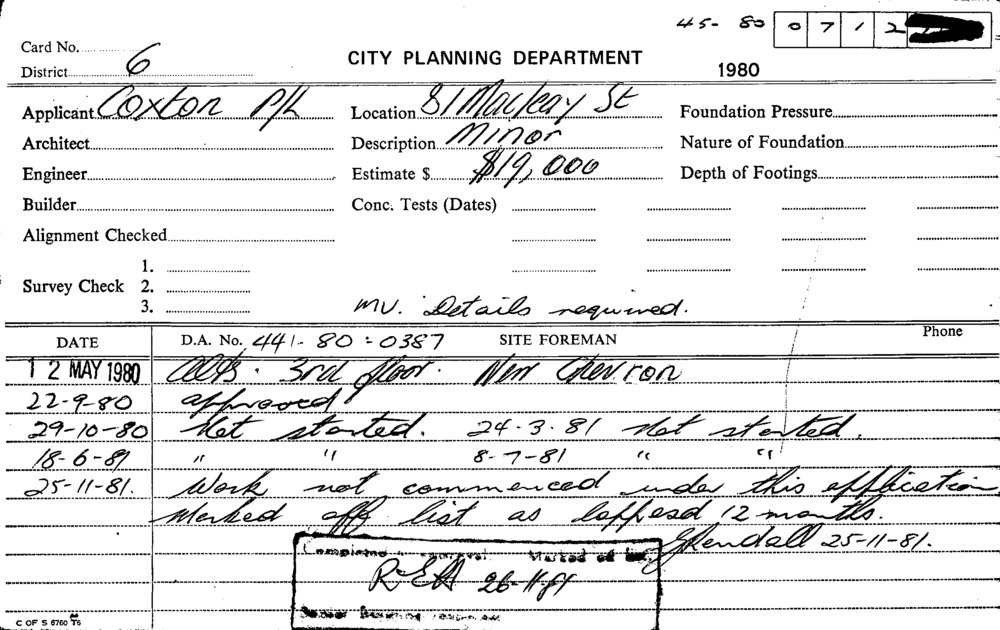 45- 80 0712
Card No.
CITY PLANNING DEPARTMENT
District 6
1980
Applicant Coxton P/L Location 81 Macleay St Foundation Pressure
Architect Description Minor Nature of Foundation
Engineer Estimate $ $19,000 Depth of Footings
Builder Conc. Tests (Dates)
Alignment Checked
1.
Survey Check 2.
3.
MU. Details required.
DATE D.A. No. 441-80-0387 SITE FOREMAN Phone
12 MAY 1980 Alts. 3rd floor. New Chevron
22-9-80 approved
29-10-80 Not started. 24.3.81 Not started.
18-6-81 " " 8-7-81 " "
25-11-81. Work not commenced under this application
Marked off list as lappesd 12 months.
Glendall 25-11-81.
Completed approval. Marked off list.
26-11-81
Senior Building
C OF S 6760 T6